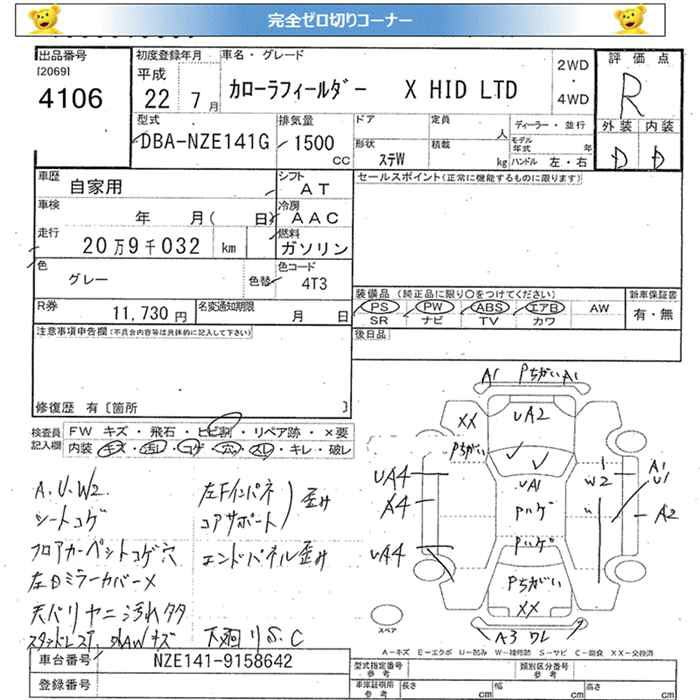 完全ゼロ切りコーナー
出品番号
[2069]
4106
初度登録年月
平成
22 7月
車名・グレード
カローラフィールダー X HID LTD
2WD
・
4WD
評価点
R
外装 内装
D D
型式
DBA-NZE141G
排気量
1500
cc
ドア
形状
ステW
定員
人
積載
kg
ディーラー・並行
モデル年式
年
ハンドル 左・右
車歴
自家用
シフト
AT
セールスポイント(正常に機能するものに限ります)
車検
年 月( 日)
冷房
AAC
走行
20万9千032 km
燃料
ガソリン
色
グレー
色替
色コード
4T3
R券
11,730円
名変通知期限
月 日
装備品(純正品に限り○をつけてください)
PS PW ABS エアB AW
SR ナビ TV カワ
新車保証書
有・無
後日品
注意事項申告欄(不具合内容等は具体的に記入して下さい)
修復歴 有[箇所 ]
検査員記入欄
FW キズ・飛石・ヒビ割・リペア跡・×要
内装 キズ・汚レ・コゲ・穴・スレ・キレ・破レ
A.U.W2.
シートコゲ
フロアカーペットコゲ穴
左ドミラーカバー×
天バリヤニ汚れタタ
左Fインパネ
コアサポート
歪み
エンドパネル歪み
下廻りS.C
A1 Pちがい A1
XX
UA2
Pちがい
UA1
UA4
A4
UA4
Pハゲ
Pハゲ
Pちがい
XX
A3 ワレ
W2
A1
U1
A2
スペア
A-キズ E-エクボ U-凹み W-補修跡 S-サビ C-腐食 XX-交換済
車台番号
NZE141-9158642
登録番号
型式指定番号
参考
類別区分番号
参考
車庫証明用
参考
長さ cm
幅 cm
高さ cm